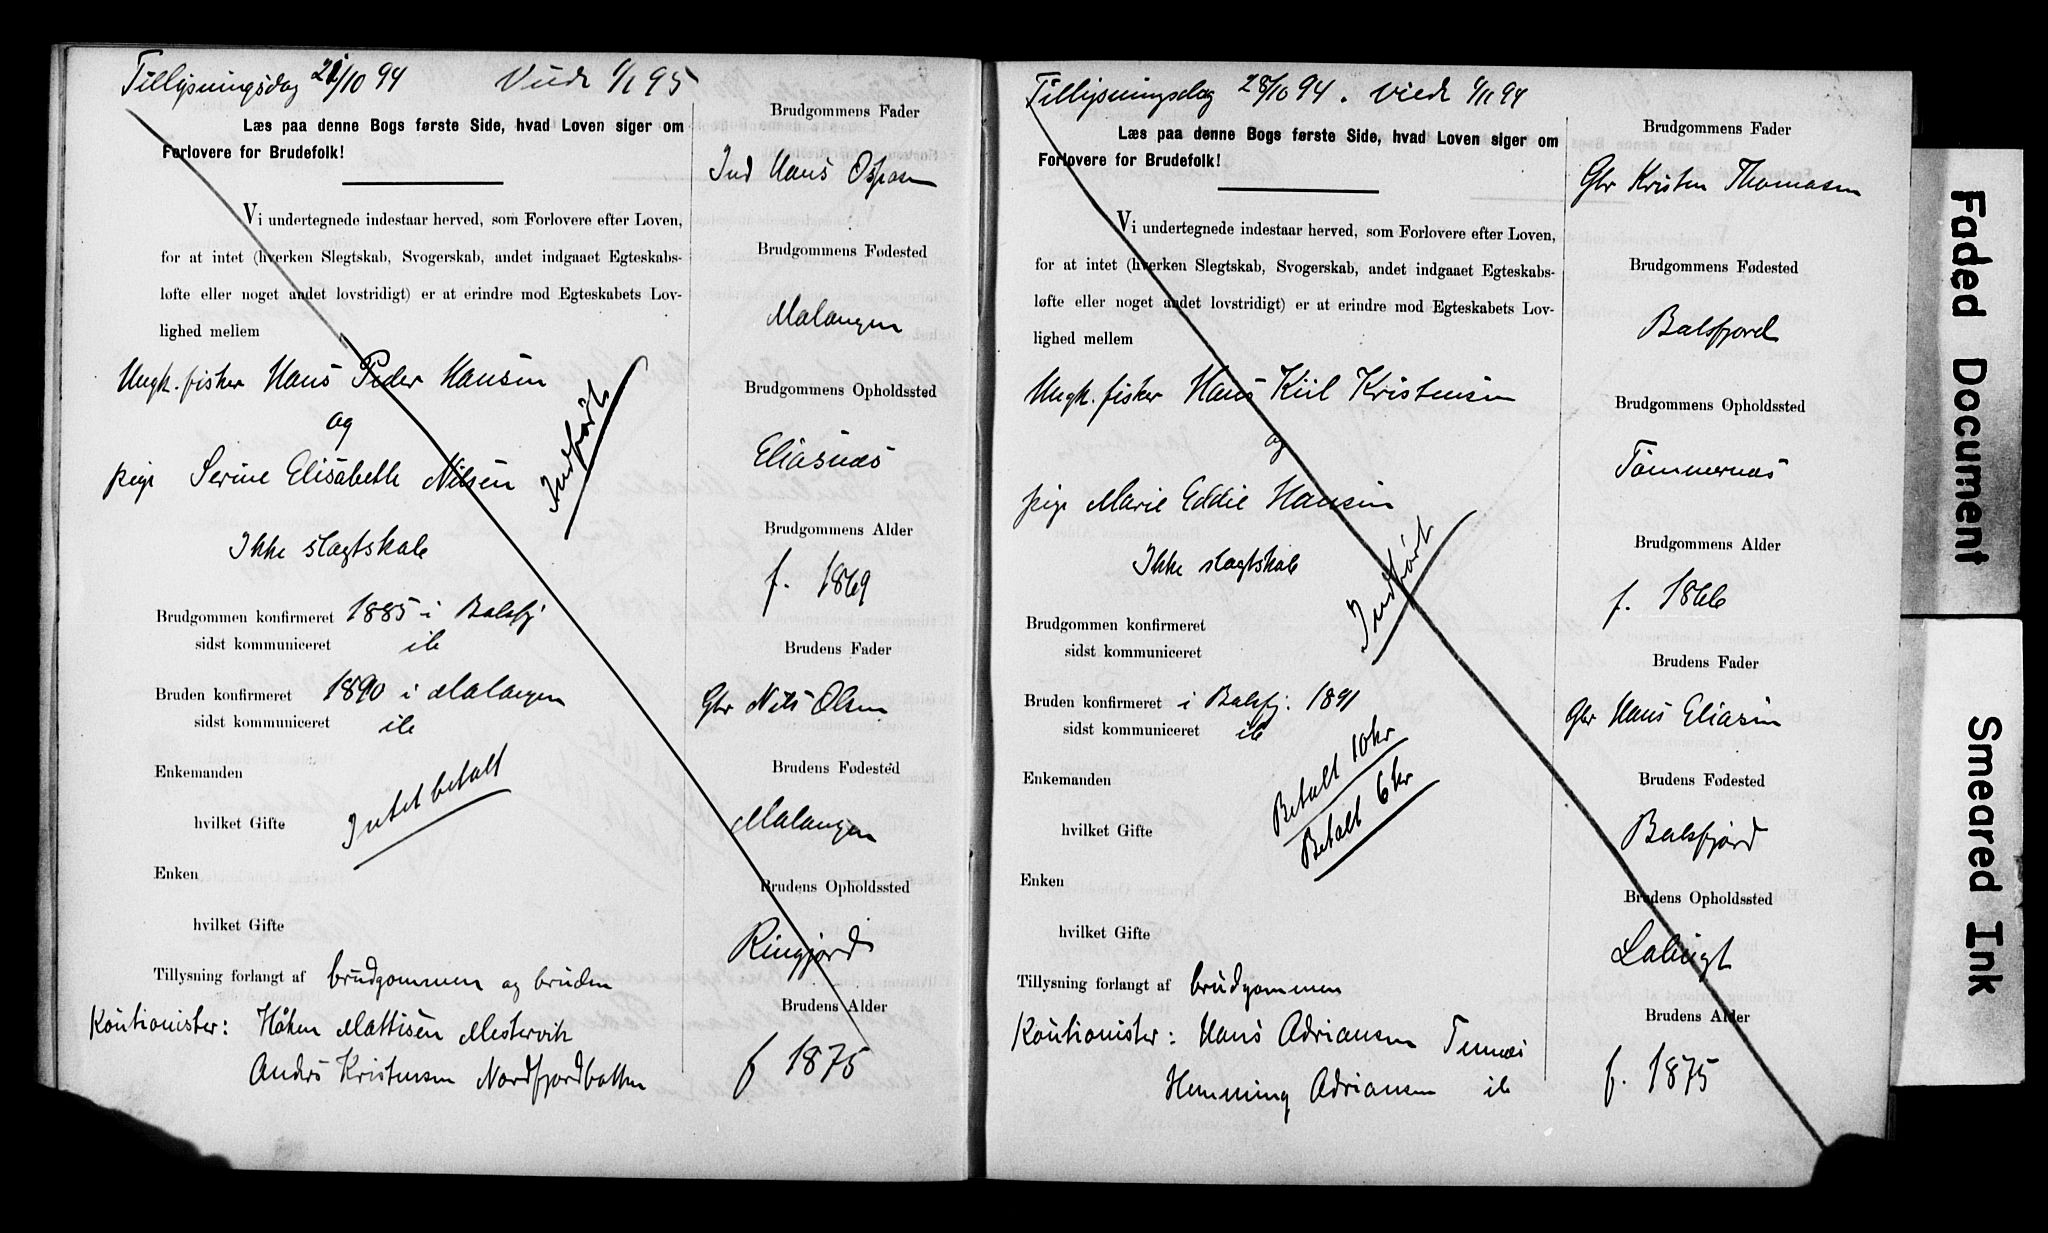 Tillysningsdag 21/10 94 Viede 6/1 95
Læs paa denne Bogs første Side, hvad Loven siger om
Forlovere for Brudefolk!
Vi undertegnede indestaar herved, som Forlovere efter Loven,
for at intet (hverken Slegtskab, Svogerskab, andet indgaaet Egteskabs-
løfte eller noget andet lovstridigt) er at erindre mod Egteskabets Lov-
lighed mellem
Ungk. fisker Hans Peder Hansen
og
pige Serine Elisabeth Nilsen
Indført
Ikke slagtskab
Brudgommen konfirmeret 1885 i Balsfj
sidst kommuniceret ib
Bruden konfirmeret 1890 i Malangen
sidst kommuniceret ib
Enkemanden
Intet betalt
hvilket Gifte
Enken
hvilket Gifte
Tillysning forlangt af brudgommen og bruden
Kautionister: Håken Mattisen Mestervik
Anders Kristensen Nordfjordbotten
Brudgommens Fader
Ind Hans
Brudgommens Fødested
Malangen
Brudgommens Opholdssted
Eliasnæs
Brudgommens Alder
f. 1869
Brudens Fader
Gbr Nils Olsen
Brudens Fødested
Malangen
Brudens Opholdssted
Ringfjord
Brudens Alder
f 1875
Tillysningsdag 28/10 94. Viede 6/11 94
Læs paa denne Bogs første Side, hvad Loven siger om
Forlovere for Brudefolk!
Vi undertegnede indestaar herved, som Forlovere efter Loven,
for at intet (hverken Slegtskab, Svogerskab, andet indgaaet Egteskabs-
løfte eller noget andet lovstridigt) er at erindre mod Egteskabets Lov-
lighed mellem
Ungk. fisker Hans Kiil Kristensen
og
pige Marie Eddie Hansen
Ikke slagtskab
Indført
Brudgommen konfirmeret
sidst kommuniceret
Bruden konfirmeret i Balsfj. 1891
sidst kommuniceret ib
Enkemanden
Betalt 10 kr
hvilket Gifte
Betalt 6 kr
Enken
hvilket Gifte
Tillysning forlangt af brudgommen
Kautionister: Hans Adriansen Tennæs
Hemming Adriansen ib
Brudgommens Fader
Gbr Kristen Thomasen
Brudgommens Fødested
Balsfjord
Brudgommens Opholdssted
Tømmernæs
Brudgommens Alder
f. 1866
Brudens Fader
Gbr Hans Eliasen
Brudens Fødested
Balsfjord
Brudens Opholdssted
Brudens Alder
f. 1875
Faded Document
Smeared Ink